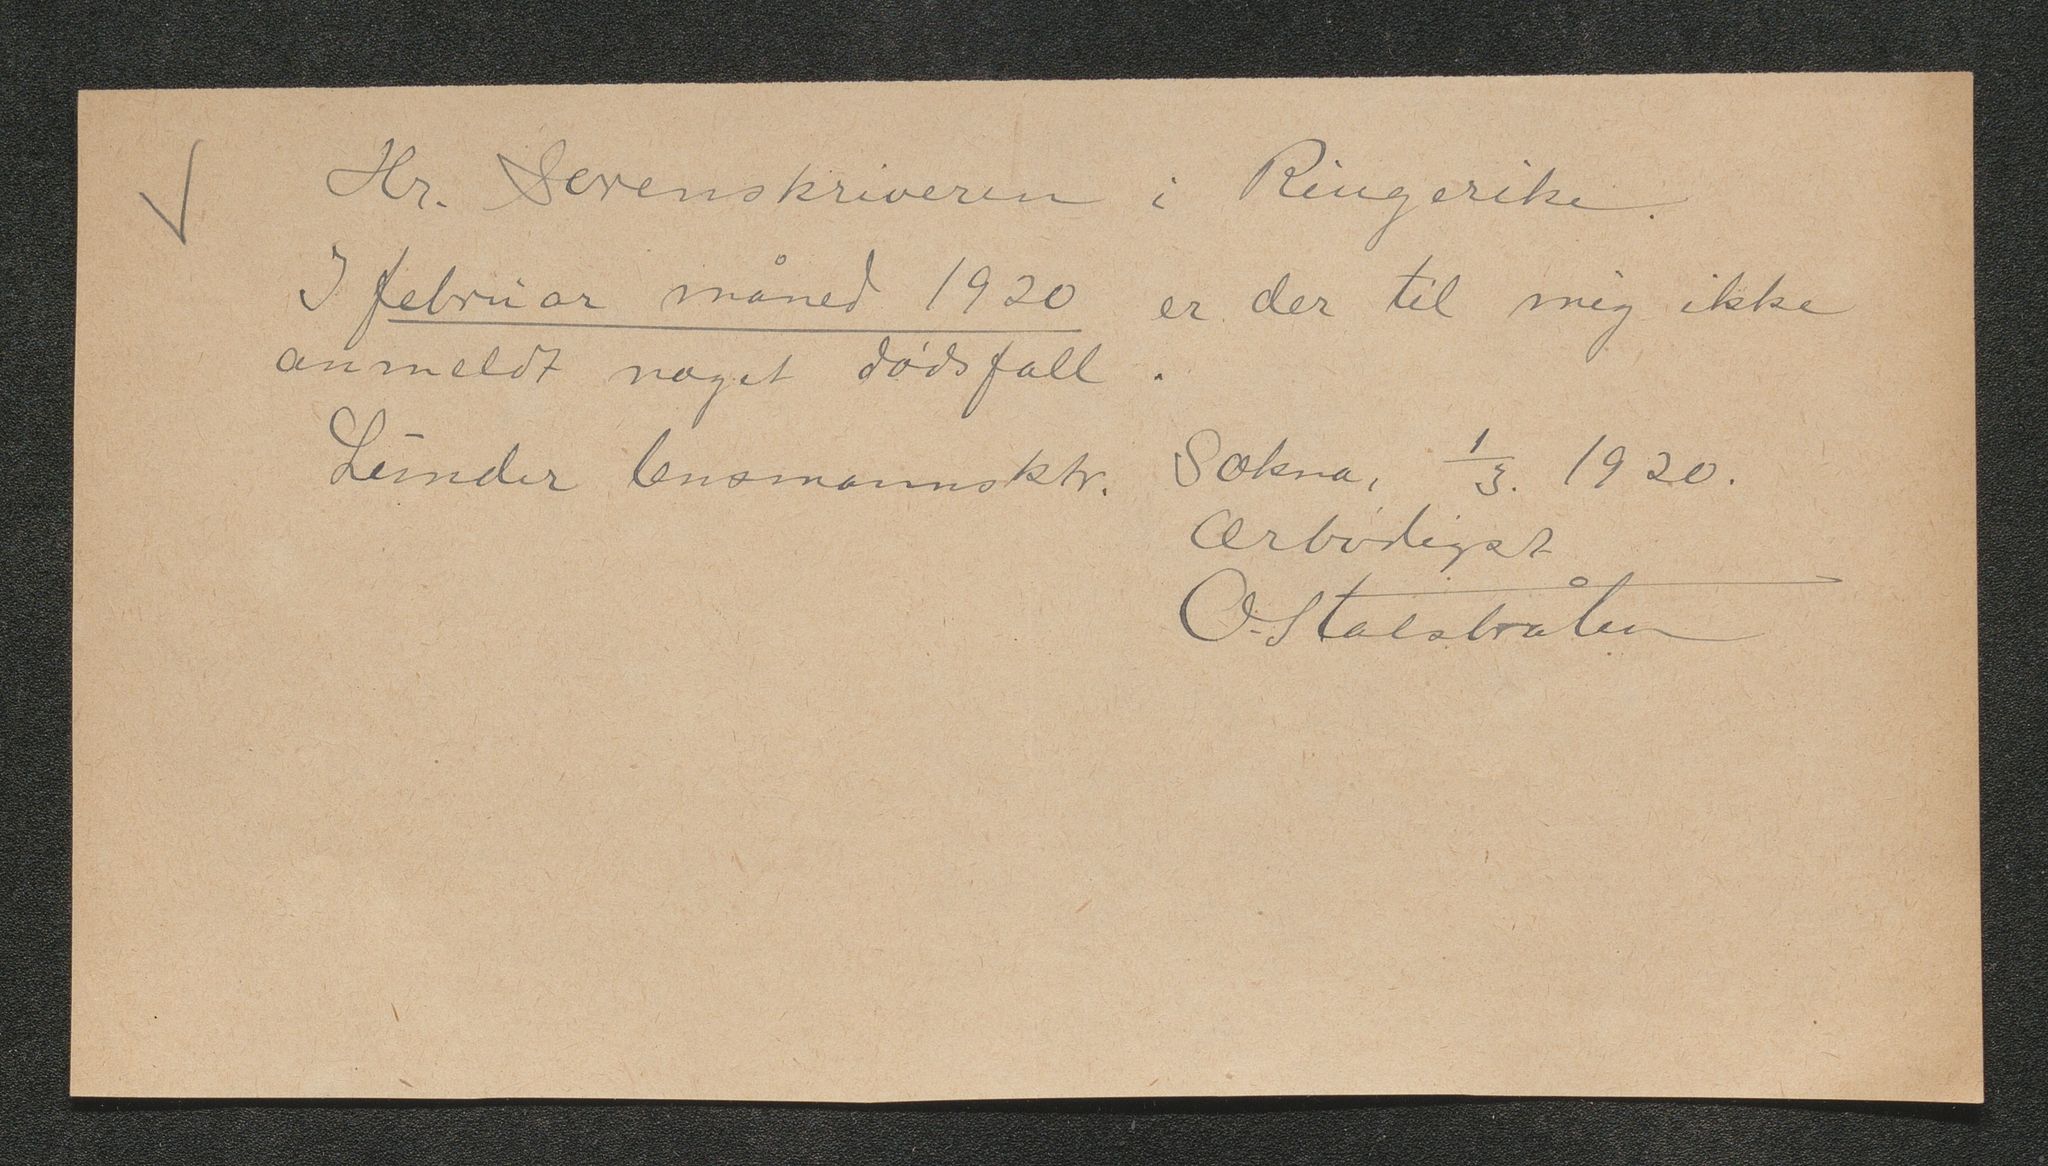 Hr. Sorenskriveren i Ringerike.
I februar måned 1920 er der til mig ikke
anmeldt noget dødsfall.
Lunder lensmannsktr. Sokna, 1/3. 1920.
Ærbødigst
O. Stalsbråten